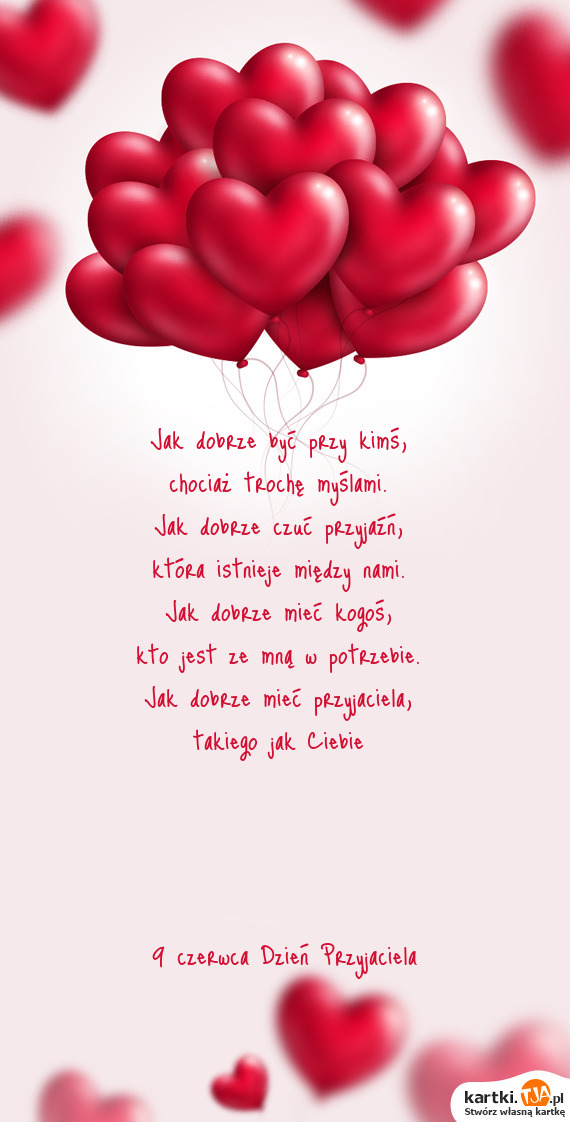 Jak dobrze być przy kimś,
chociaż trochę myślami.
Jak dobrze czuć przyjaźń,
która istnieje między nami.
Jak dobrze mieć kogoś,
kto jest ze mną w potrzebie.
Jak dobrze mieć przyjaciela,
takiego jak Ciebie
9 czerwca Dzień Przyjaciela
kartki.TJA.pl
Stwórz własną kartkę